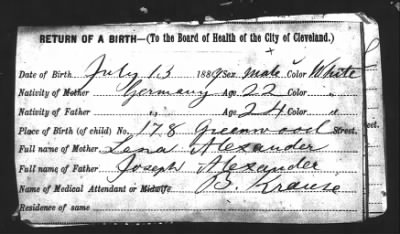 RETURN OF A BIRTH—(To the Board of Health of the City of Cleveland.)
Date of Birth July 13 1889 Sex male Color White
Nativity of Mother Germany Age 22 Color "
Nativity of Father " Age 24 Color "
Place of Birth (of child) No. 178 Greenwood Street.
Full name of Mother Lena Alexander
Full name of Father Joseph Alexander
Name of Medical Attendant or Midwife B. Krause
Residence of same